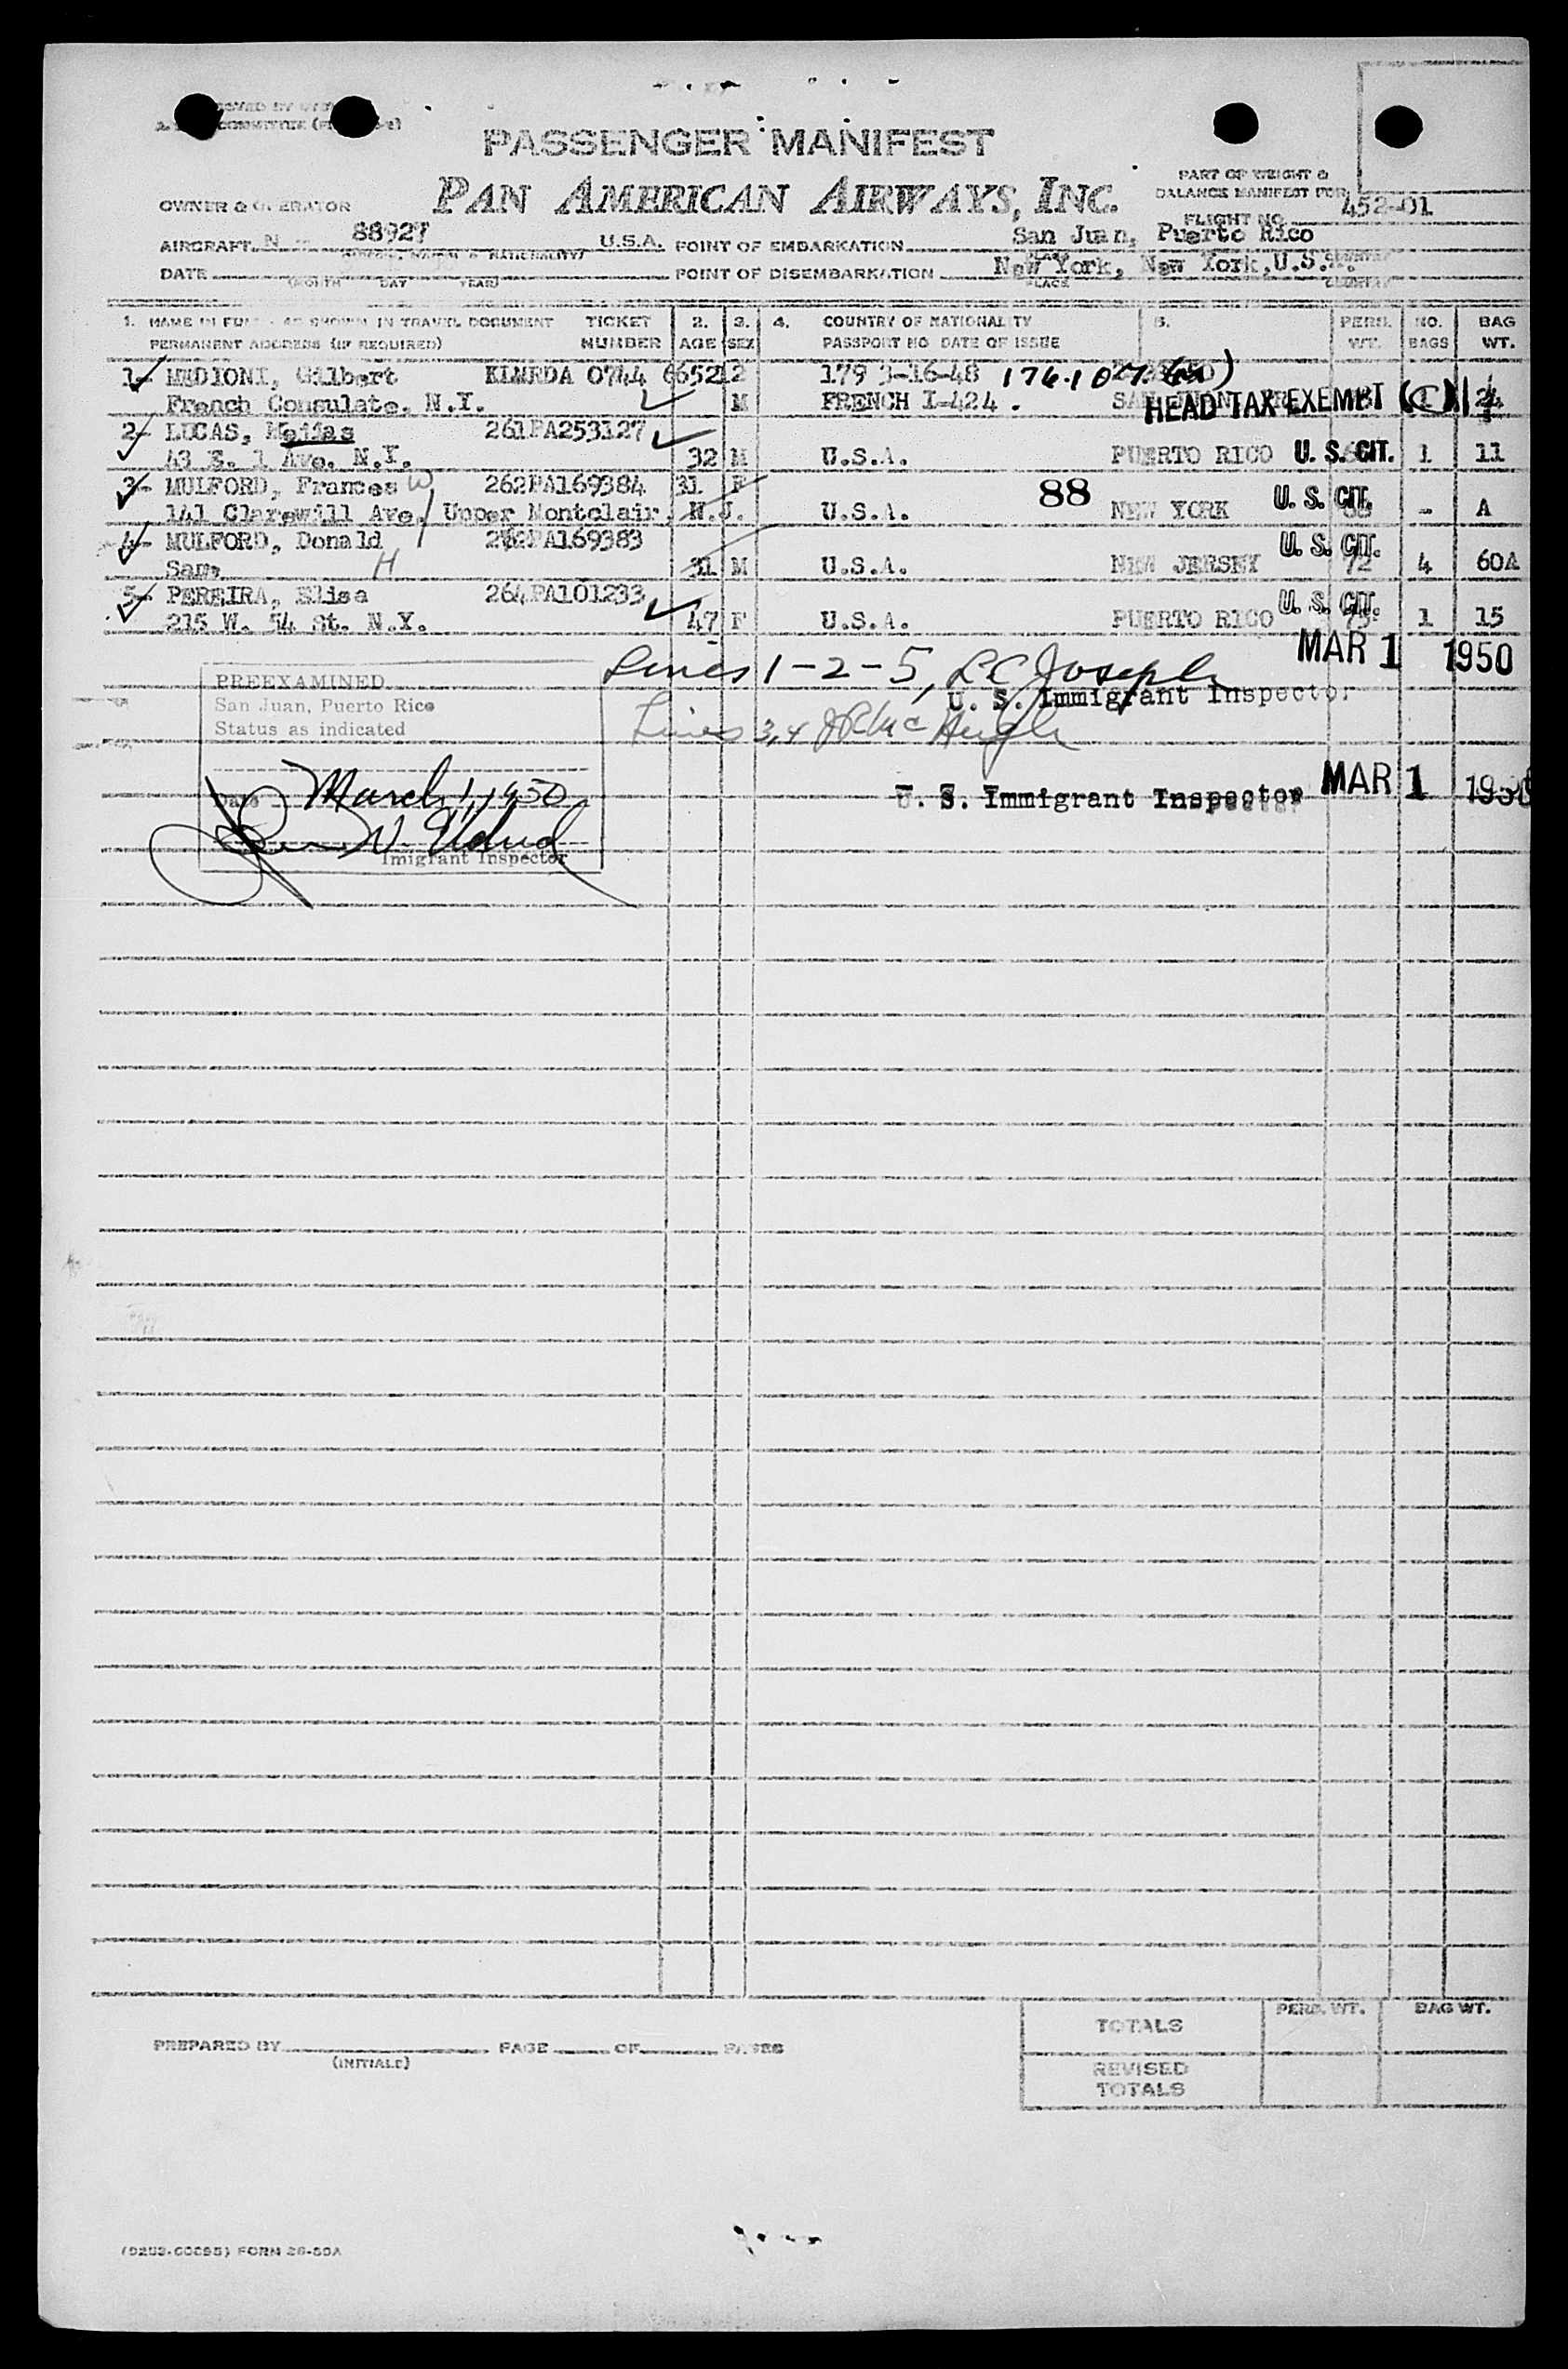 PASSENGER MANIFEST
PAN AMERICAN AIRWAYS, INC.
PART OF WEIGHT &
BALANCE MANIFEST FOR
FLIGHT NO. 452-01
OWNER & OPERATOR
AIRCRAFT N 88927 U.S.A. POINT OF EMBARKATION San Juan, Puerto Rico
DATE POINT OF DISEMBARKATION New York, New York, U.S.A.
(MONTH DAY YEAR) PLACE COUNTRY
1. NAME IN FULL - AS SHOWN IN TRAVEL DOCUMENT TICKET 2. 3. 4. COUNTRY OF NATIONALITY 5. PERS. NO. BAG
PERMANENT ADDRESS (IF REQUIRED) NUMBER AGE SEX PASSPORT NO DATE OF ISSUE WT. BAGS WT.
1- MEDIONI, Gilbert 0744 179 3-16-48 176.107
French Consulate, N.Y. M FRENCH I-424. HEAD TAX EXEMPT (C) 1 24
2- LUCAS, 261PA253127
43 E. 1 Ave. N.Y. 32 M U.S.A. PUERTO RICO U. S. CIT. 1 11
3- MULFORD, Frances W 262PA169384 31 F
141 Clarewill Ave, Upper Montclair, N.J. U.S.A. 88 NEW YORK U. S. CIT. - A
4- MULFORD, Donald PA169383 U. S. CIT.
Same H 31 M U.S.A. NEW JERSEY 72 4 60A
5- PEREIRA, Elisa 264PA101233 U. S. CIT.
215 W. 54 St. N.Y. 47 F U.S.A. PUERTO RICO 75 1 15
MAR 1 1950
Lines 1-2-5, L C Joseph
U. S. Immigrant Inspector
PREEXAMINED
San Juan, Puerto Rico
Status as indicated
Lines 3,4 McHugh
Date March 1, 1950
U. S. Immigrant Inspector MAR 1 1950
Imigrant Inspector
TOTALS PERS. WT. BAG WT.
PREPARED BY PAGE OF PAGES
(INITIALS)
REVISED
TOTALS
FORM 26-50A